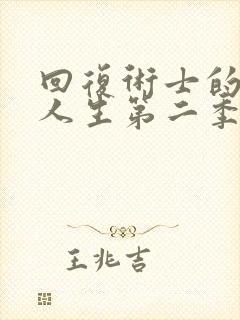 回復術士的
人生第二季
王兆吉